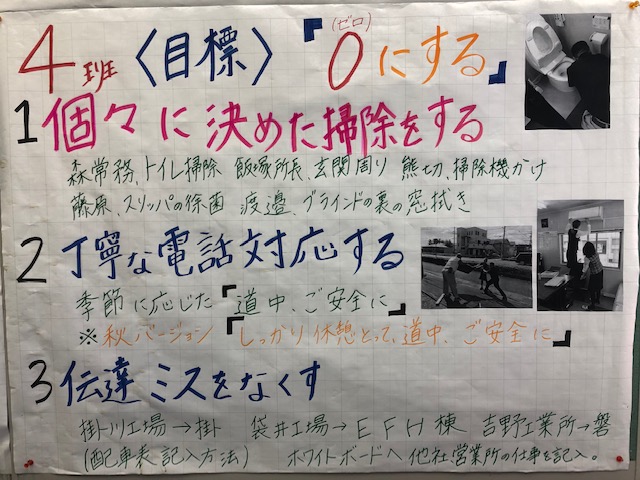 4班 〈目標〉 『0(ゼロ)にする』
1 個々に決めた掃除をする
森常務、トイレ掃除 飯塚所長、玄関周り 熊切、掃除機かけ
藤原、スリッパの徐菌 渡邉、ブラインドの裏の窓拭き
2 丁寧な電話対応する
季節に応じた『道中、ご安全に』
※秋バージョン『しっかり休憩とって、道中、ご安全に』
3 伝達ミスをなくす
掛川工場→掛 袋井工場→EFH棟 吉野工業所→磐
(配車表記入方法) ホワイトボードへ他社営業所の仕事を記入。